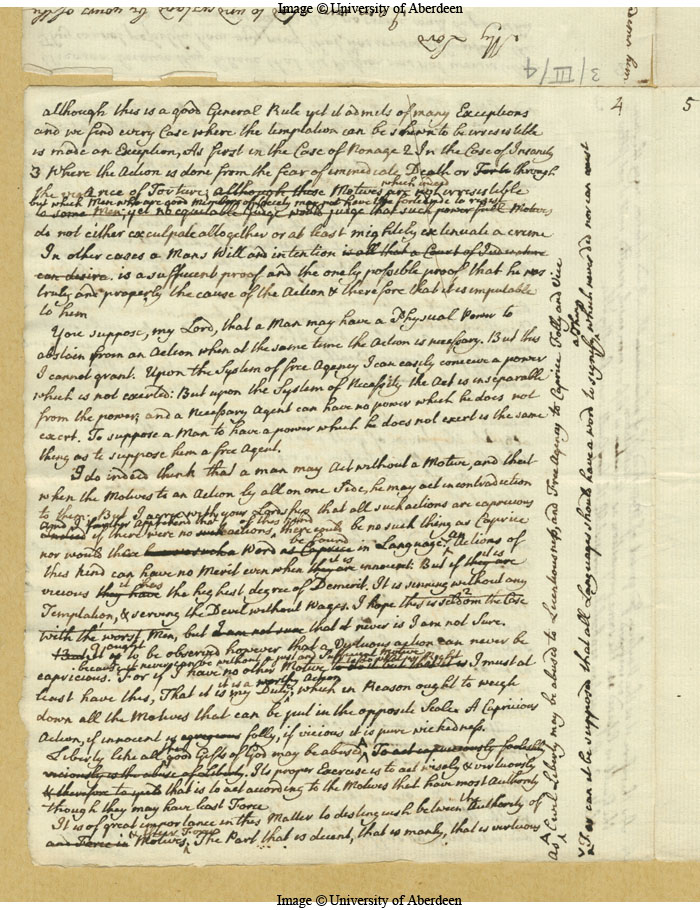 Image © University of Aberdeen
My Lord
3/III/4
4
5
although this is a good General Rule yet it admets of many Exceptions
and we find every Case where the temptation can be shewn to be irresestible
is made an Exception, As first in the Case of Nonage 2 In the Case of Insanity
3 Where the Action is done from the fear of immediate Death or Torto through
the violence of Torture; although these Motives which indeed are not irresistible
but which Men who are good members of Society may not have the fortitude to resist
to some Men; yet no equitable Judge would judge that such powerfull Motives
do not either exculpate altogether or at least mightily extenuate a crime
In other cases a Mans Will and intention is all that a Court of Judicature
can desire. is a sufficient proof and the onely possible proof that he was
truly and properly the cause of the Action & therefore that it is imputable
to him
You suppose, my Lord, that a Man may have a Physical Power to
abstain from an Action when at the same time the Action is necessary. But this
I cannot grant. Upon the System of free Agency I can easily conceive a power
which is not exerted: But upon the System of Necessity the Act is inseparable
from the power; and a Necessary Agent can have no power which he does not
exert. To suppose a Man to have a power which he does not exert is the same
thing as to suppose him a free Agent.
I do indeed think that a man may Act without a Motive, and that
when the Motives to an Action ly all on one Side, he may act in contradiction
to them. But I agree with your Lordship that all such actions are capricious
And I apprehend that
if there were no such actions of this kind, there could be no such thing as Caprice
nor would there be found a Word as Caprice in Language. Actions of
this kind can have no Merit even when they are it is innocent: But if they are it is
vicious they have it has the highest degree of Demerit. It is sinning without any
Temptation, & serving the Devil without Wages. I hope this is seldom the Case
with the worst Men, but I am not sure that it never is I am not Sure.
But It ought to be observed however that a Virtuous action can never be
capricious. because it never can be without a just and sufficient Motive
For if I have no other Motive to do it but that it is I must at
least have this, That it is a worthy Action it is my Duty; which in Reason ought to weigh
down all the Motives that can be put in the opposite Scale. A Capricious
Action, if innocent is egregious folly, if vicious it is pure wickedness.
Liberty like all good Gifts of God may be abused. To act capriciously foolishly
viciously is the abuse of Liberty. Its proper Exercise is to act wisely & virtuously
& therefore to yield that is to act according to the Motives that have most Authority
though they may have least Force
It is of great importance in this Matter to destinguish between Authority of
and Force in Motives & their Force. The Part that is decent, that is manly, that is virtuous
As Civil Liberty may be abused to Licentiousness, and Free Agency to Caprice Folly and Vice
Nor can it be supposed that all Languages should have a word to signify a thing which never did nor can exist
Image © University of Aberdeen